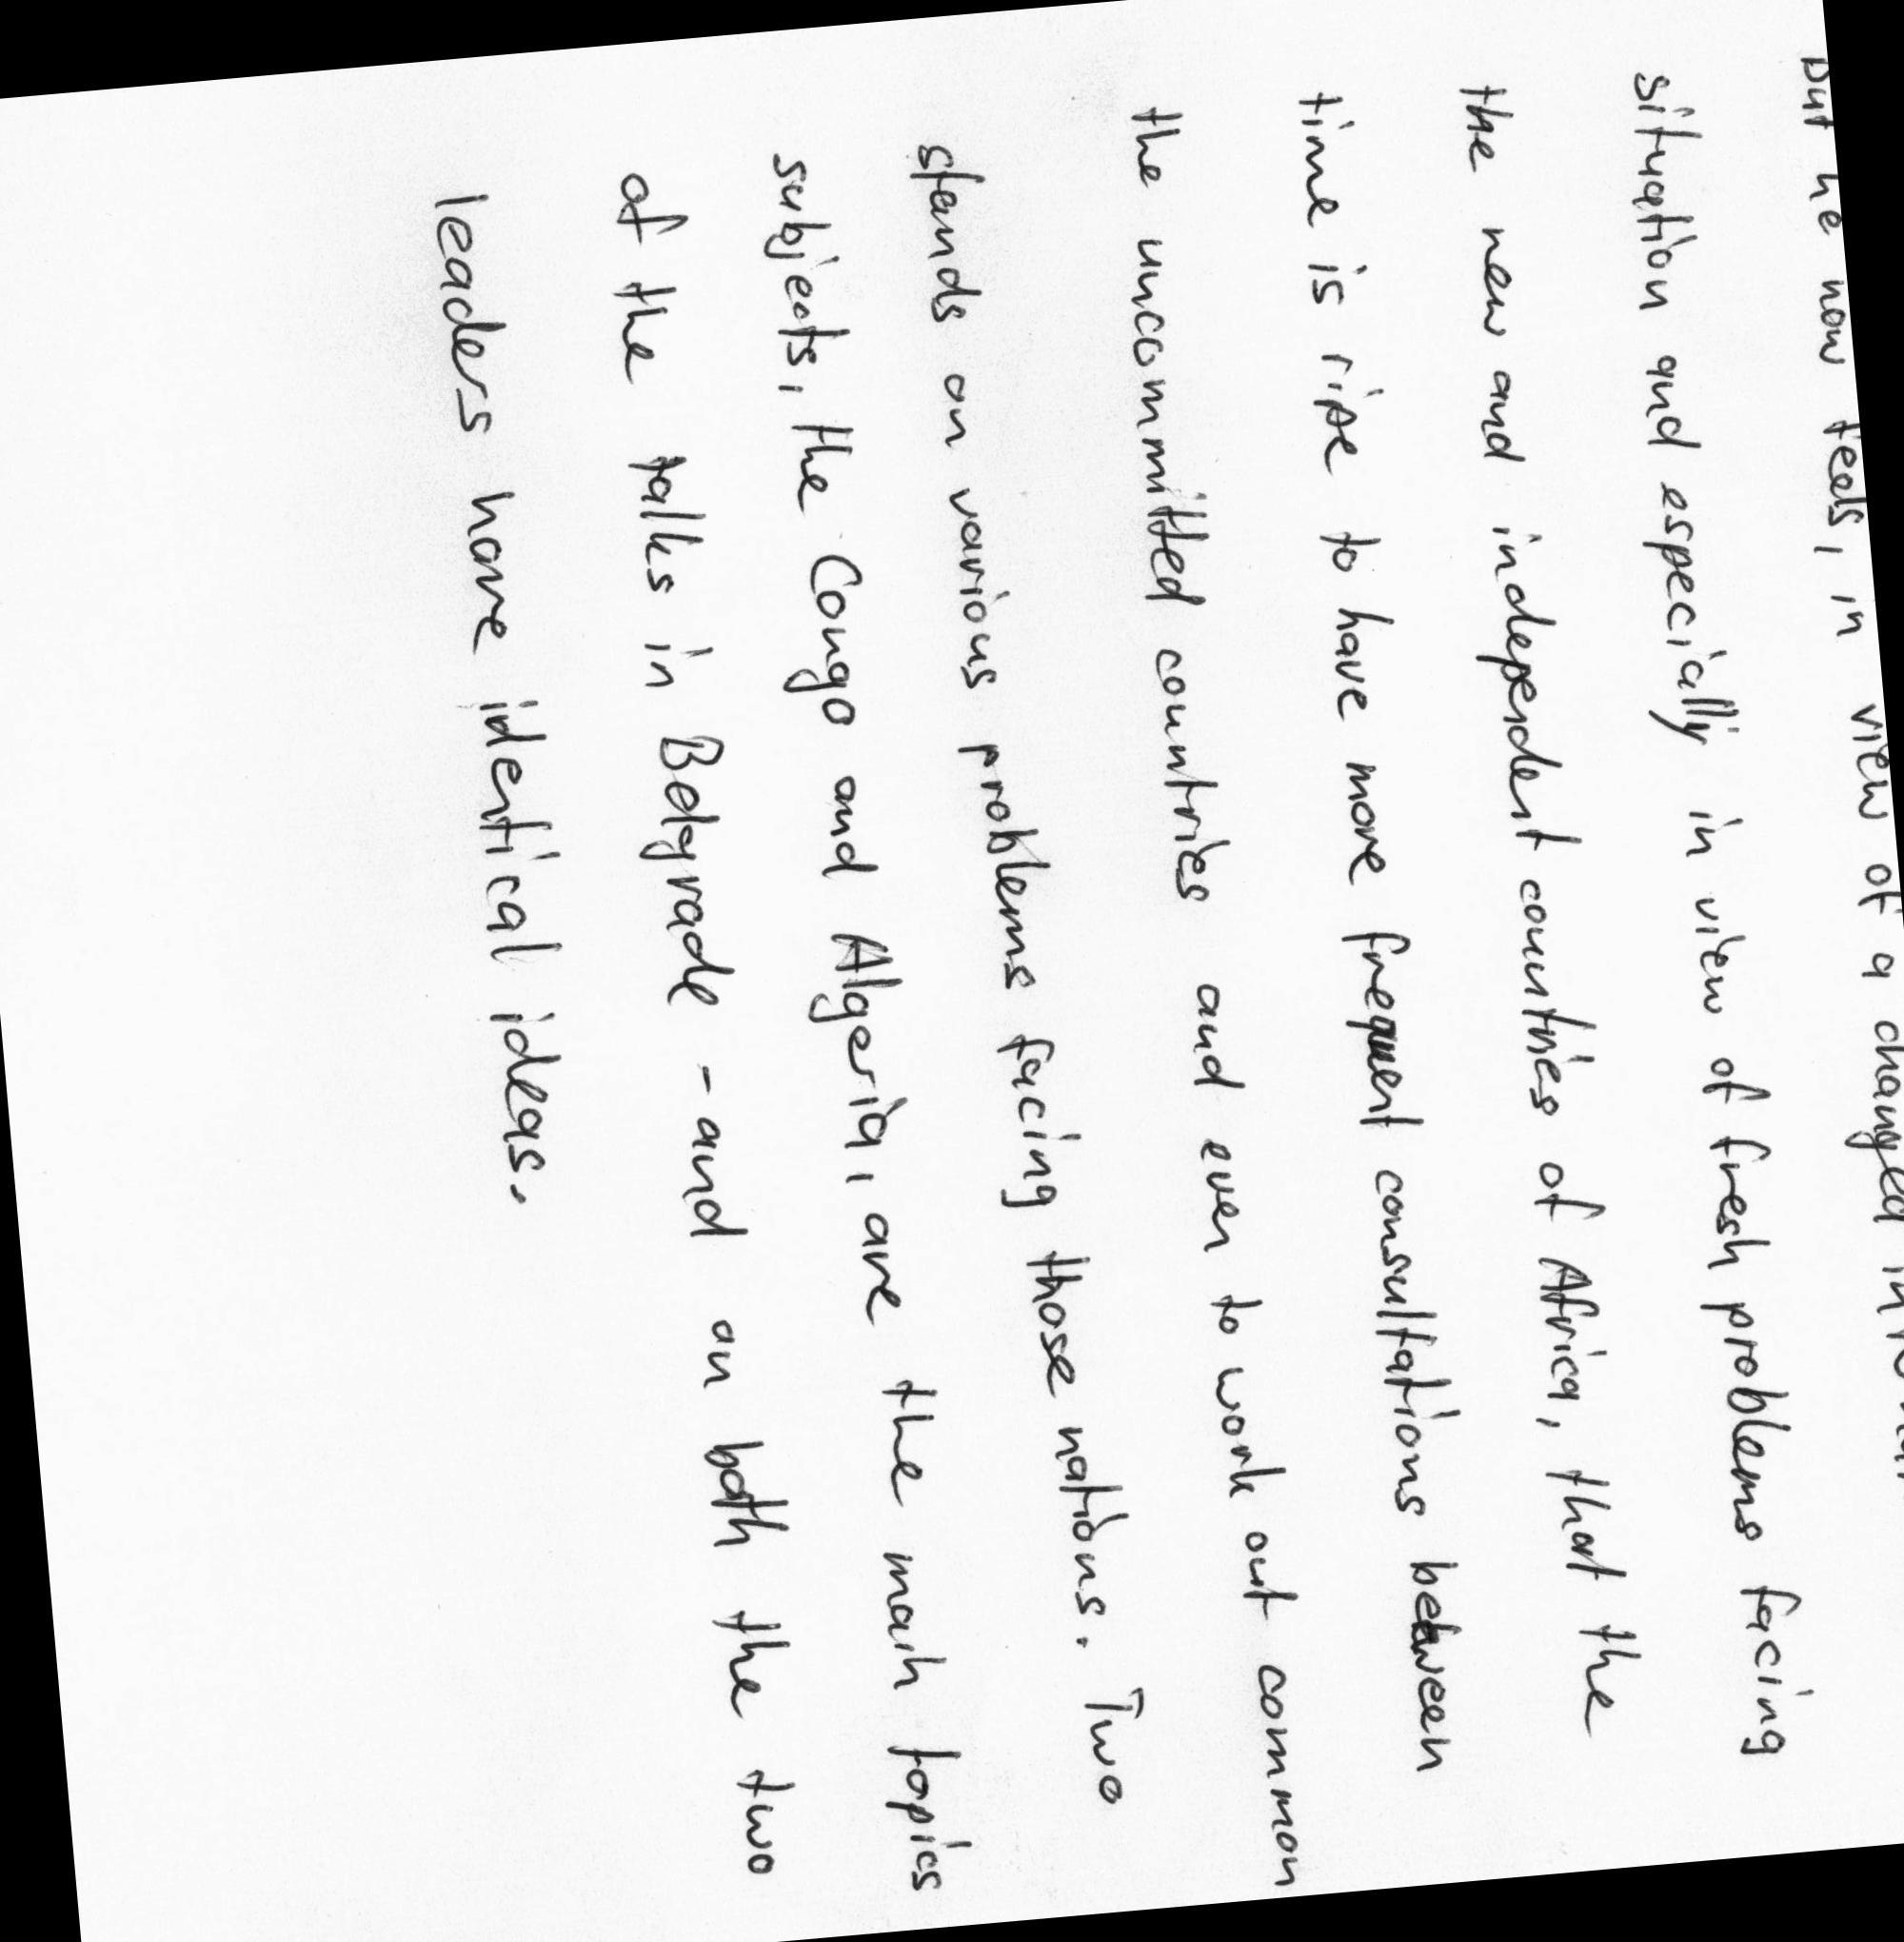 but he now feels, in view of a changed
situation and especially in view of fresh problems facing
the new and independent countries of Africa, that the
time is ripe to have more frequent consultations between
the uncommitted countries and even to work out common
stands on various problems facing those nations. Two
subjects, the Congo and Algeria, are the main topics
of the talks in Belgrade - and on both the two
leaders have identical ideas.